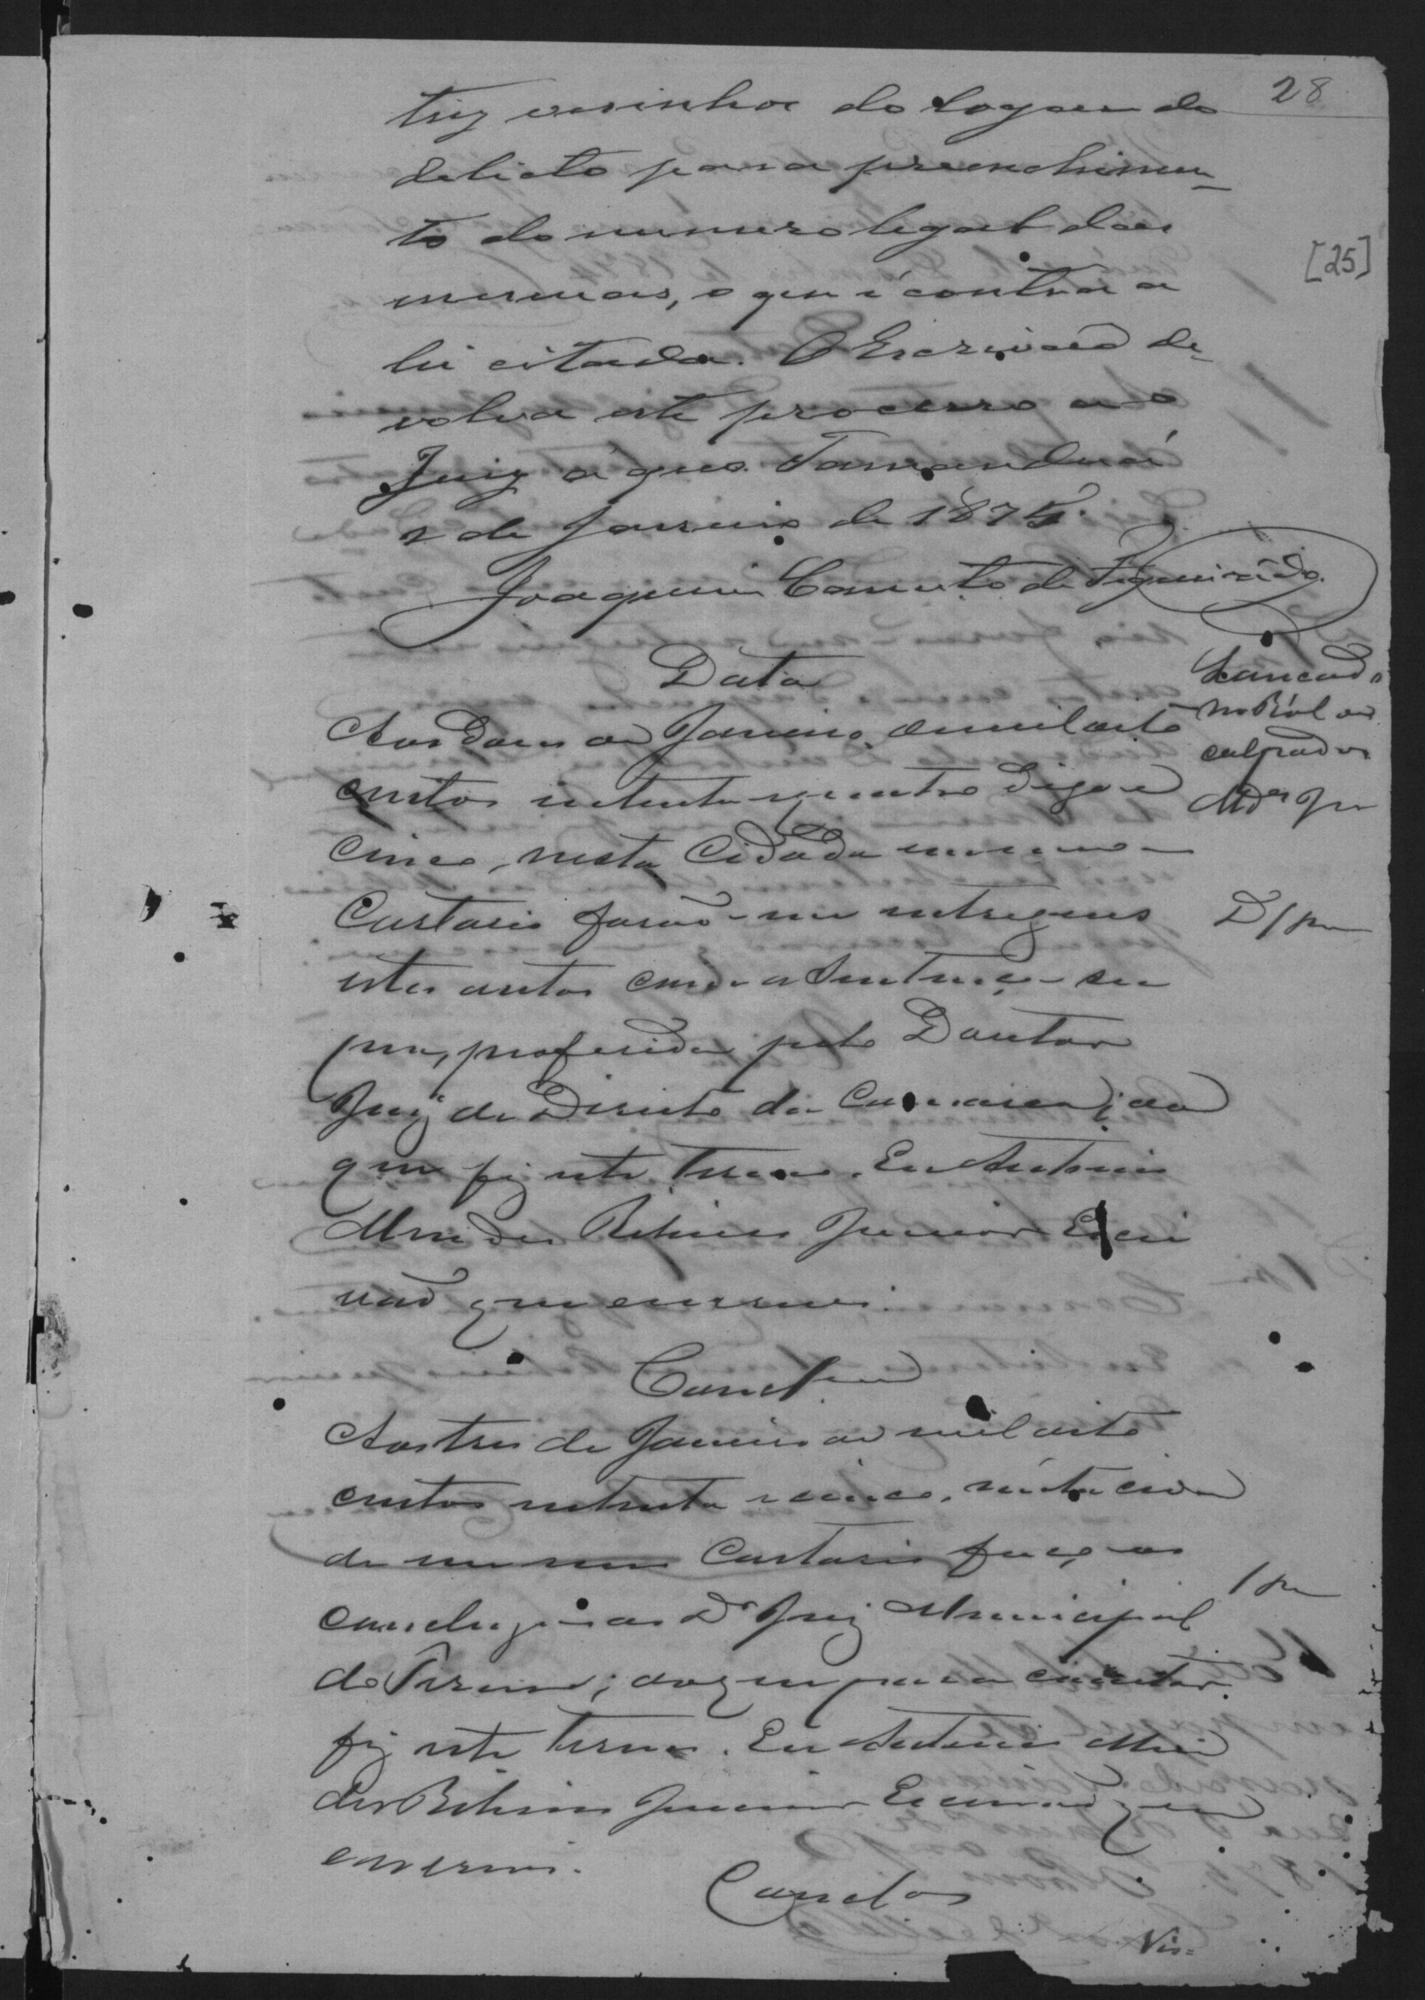 28
tiz visinhos do logar do
delicto para prenchimen-
to do numero legal das
mesmas, o que é contra a
lei citada. O Escrivaõ de-
volva este processo ao
Juiz a quo. Tamanduá
2 de Janeiro de 1875.
Joaquim Bento de Figueiredo
[25]
Data
Lancado
no Rol dos
culpados
Mdes Jor
Aos dous de Janeiro de mil oito
centos setenta e quatro digo e
cinco, nesta Cidade em meo
Cartorio foraõ-me entregues
estes autos com a Sentença su
pra, proferida pelo Doutor
Juiz de Direito da Comarca; do
que fiz este termo. Eu Antonio
Mendes Ribeiro Junior Escri
vaõ que escrevi.
Concl
Aos tres de Janeiro de mil oito
centos setenta e cinco, nesta cida
de em meu Cartorio faço os
concluzos ao Dr Juiz Municipal
do Termo; do que para constar
fiz este termo. Eu Antonio Men
des Ribeiro Junior Escrivaõ que
escrevi.
Conclos
Vis=